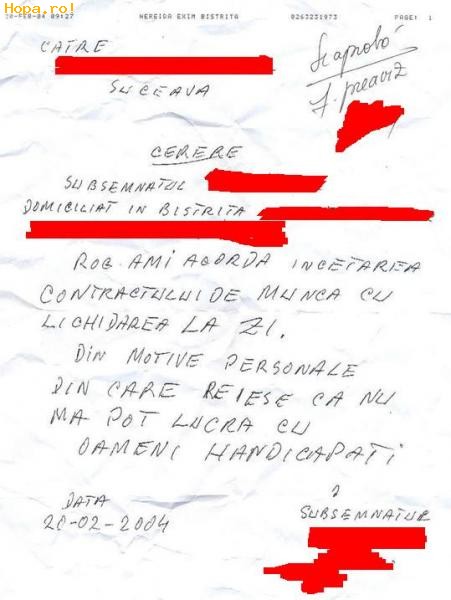 Hopa.ro!
20-FEB-04 09:27 NEREIDA EXIM BISTRITA 0263231973 PAGE: 1
CATRE
Se aprobă
f. preaviz
SUCEAVA
CERERE
SUBSEMNATUL
DOMICILIAT IN BISTRITA
ROG AMI ACORDA INCETAREA
CONTRACTULUI DE MUNCA CU
LICHIDAREA LA ZI.
DIN MOTIVE PERSONALE
DIN CARE REIESE CA NU
MA POT LUCRA CU
OAMENI HANDICAPATI
DATA
20-02-2004
SUBSEMNATUL